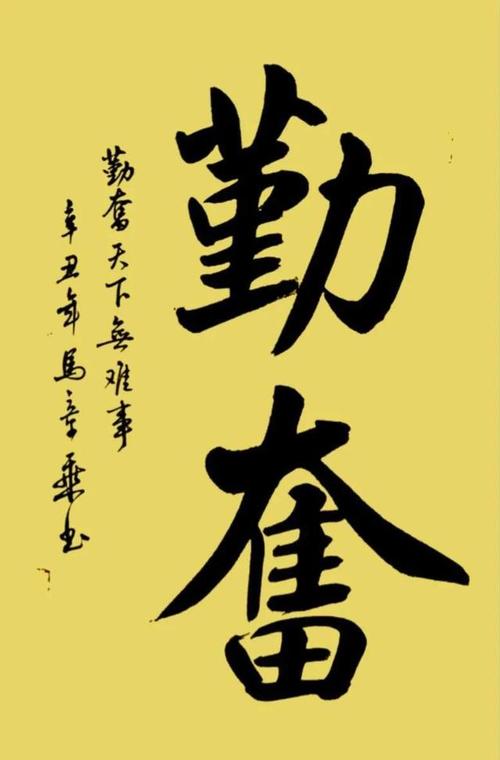 勤奮
勤奮天下無难事
辛丑年馬章乘书